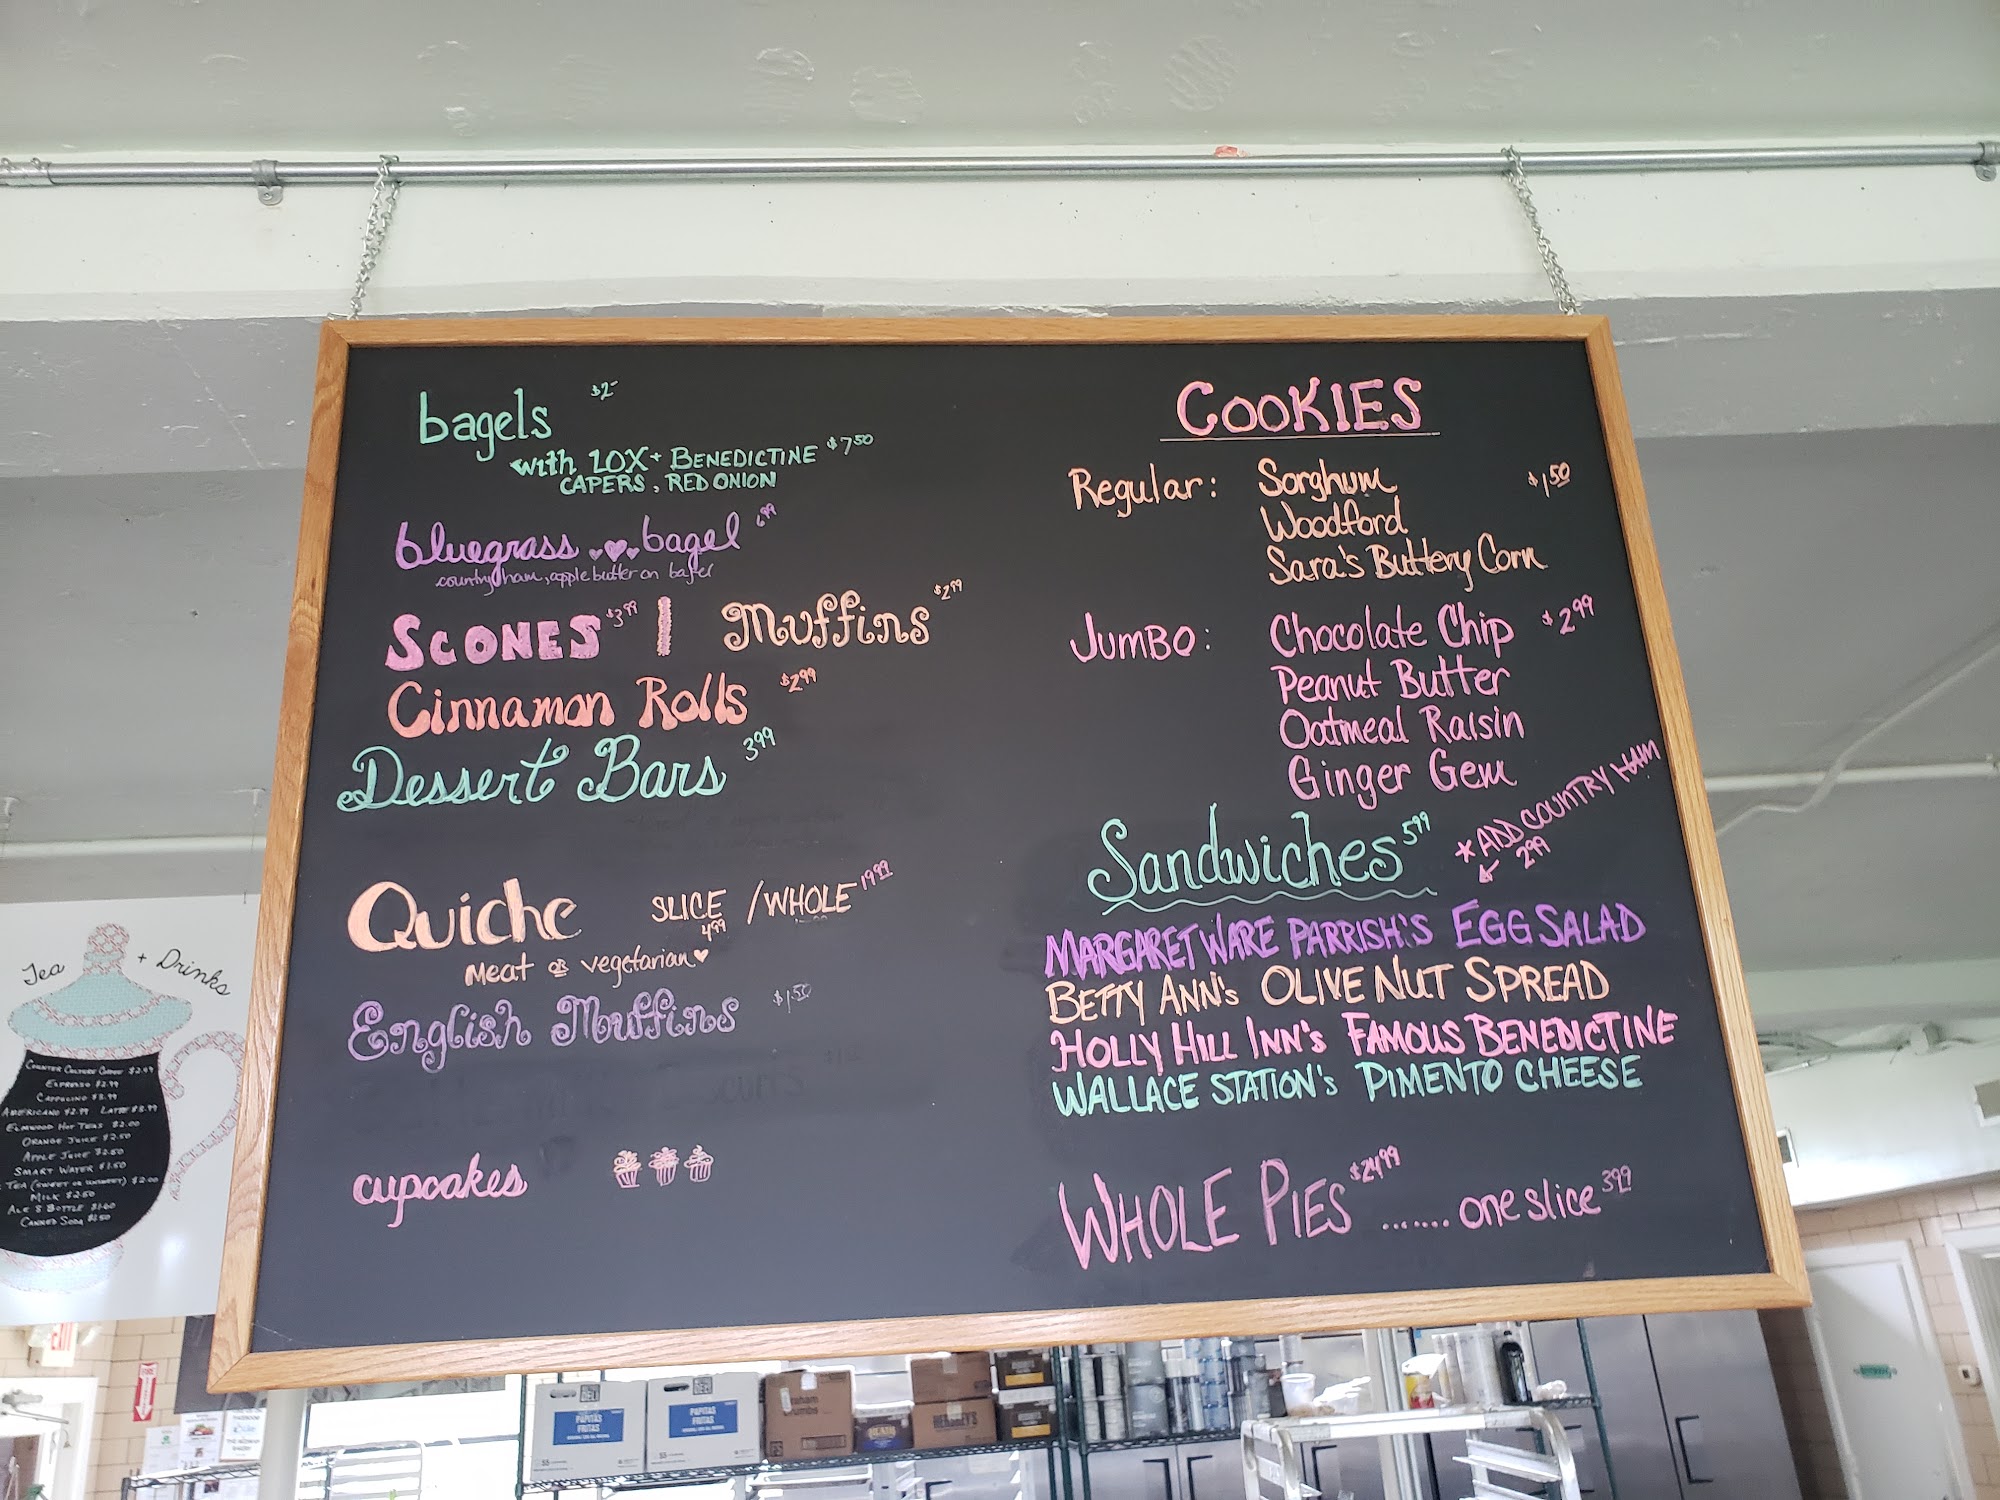 bagels $2-
with LOX + BENEDICTINE $7 50
CAPERS, RED ONION
bluegrass bagel 6 99
country ham, apple butter on bagel
SCONES $3 99 | Muffins $2 99
Cinnamon Rolls $2 99
Dessert Bars 3 99
Quiche SLICE 4 99 / WHOLE 19 99
Meat or vegetarian
English Muffins $1.50
cupcakes
COOKIES
Regular: Sorghum $1 50
Woodford
Sara's Buttery Corn
JUMBO: Chocolate Chip $2 99
Peanut Butter
Oatmeal Raisin
Ginger Gem
Sandwiches 5 99
* ADD COUNTRY HAM
2 99
MARGARET WARE PARRISH'S EGG SALAD
BETTY ANN'S OLIVE NUT SPREAD
HOLLY HILL INN'S FAMOUS BENEDICTINE
WALLACE STATION'S PIMENTO CHEESE
WHOLE PIES $24 99 ....... one slice 3 99
Tea + Drinks
COUNTER CULTURE COFFEE $2.49
ESPRESSO $2.99
CAPPUCINO $3.99
AMERICANO $2.99 LATTE $3.99
ELMWOOD HOT TEAS $2.00
ORANGE JUICE $2.50
APPLE JUICE $2.50
SMART WATER $1.50
TEA (SWEET OR UNSWEET) $2.00
MILK $2.50
ALE 8 BOTTLE $1.60
CANNED SODA $1.50
PAPITAS
FRITAS
PAPITAS
FRITAS
HERSHEY'S
FIRE